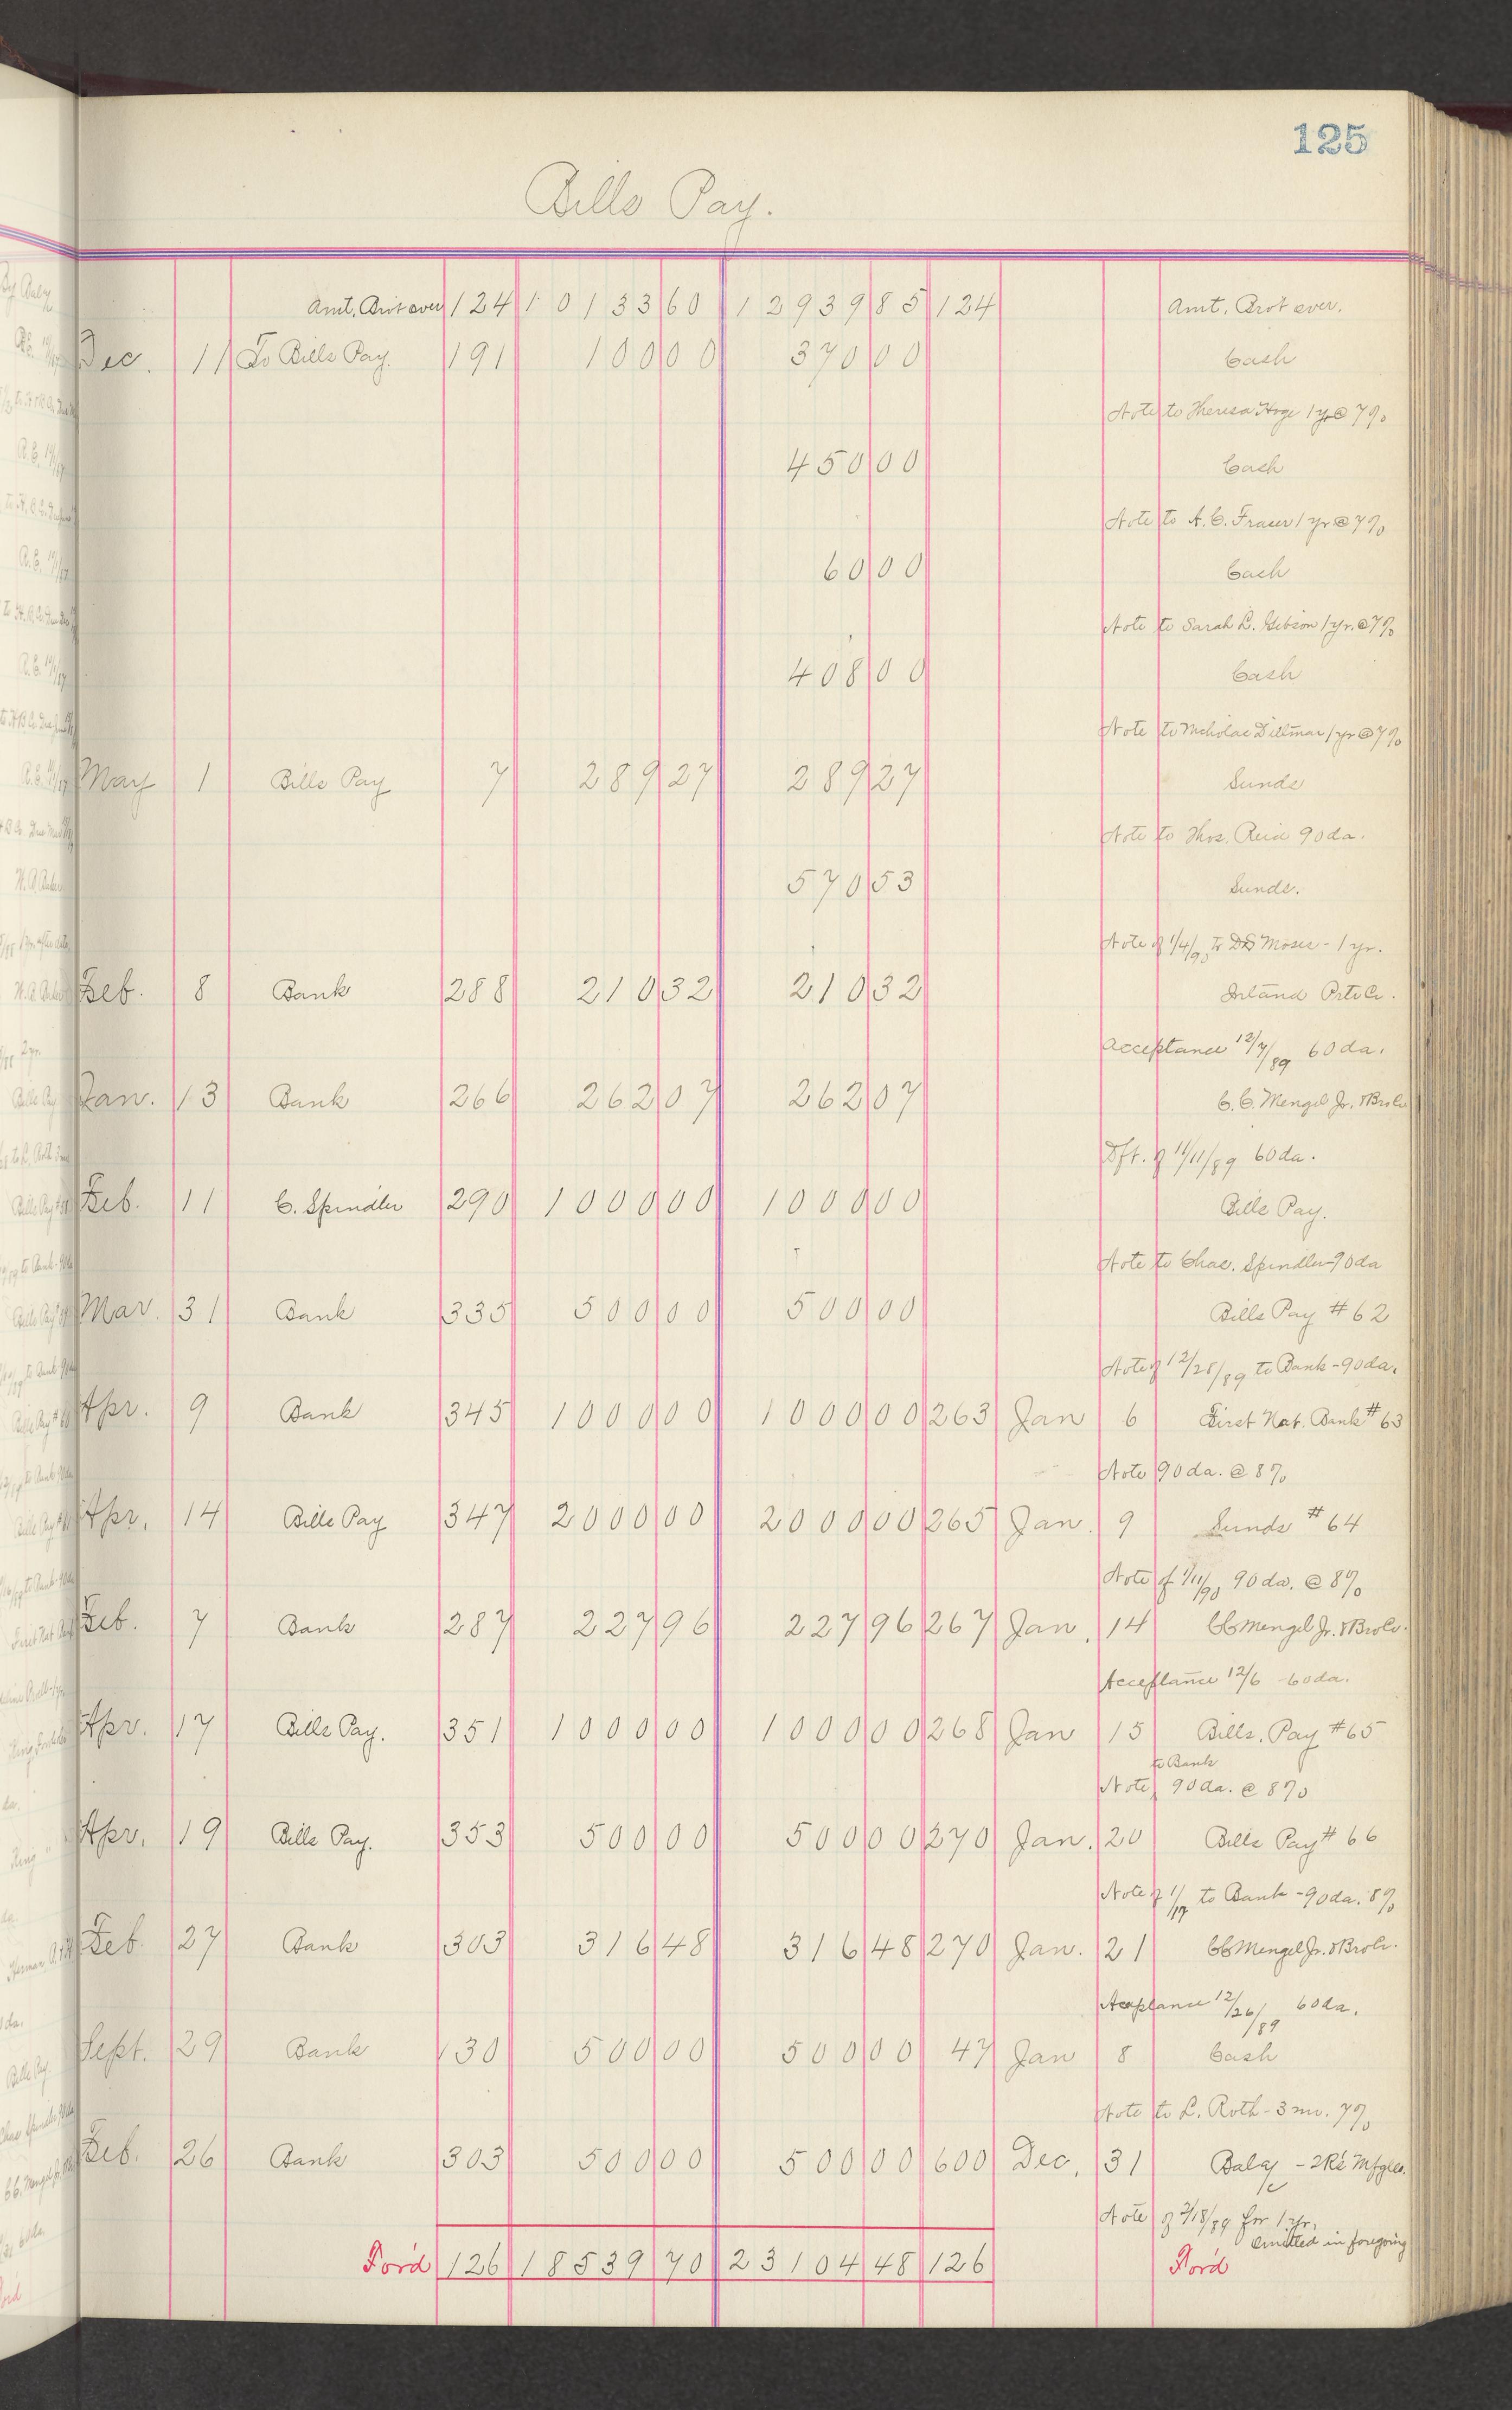 125
Bills Pay.
Amt. Brot over 124 10133 60 12939 85 124 Amt. Brot over.
Dec. 11 To Bills Pay. 191 100 00 370 00 Cash
Note to Theresa Hoge 1 yr @ 7%
450 00 Cash
Note to A. C. Fraser 1 yr @ 7%
60 00 Cash
Note to Sarah L. Gibson 1 yr. @ 7%
408 00 Cash
Note to Nicholas Dillman 1 yr @ 7%
May 1 Bills Pay 7 289 27 289 27 Sunds
Note to Thos. Reid 90 da.
570 53 Sunds.
Note of 1/4/90 to DS Moses - 1 yr.
Feb. 8 Bank 288 210 32 210 32 Inland Prt Co.
Acceptance 12/7/89 60 da.
Jan. 13 Bank 266 262 07 262 07 C. C. Mengel Jr. & Bro Co
Dft. of 11/11/89 60 da.
Feb. 11 C. Spindler 290 1000 00 1000 00 Bills Pay.
Note to Chas. Spindler - 90 da
Mar. 31 Bank 335 500 00 500 00 Bills Pay # 62
Note of 12/28/89 to Bank - 90 da.
Apr. 9 Bank 345 1000 00 1000 00 263 Jan 6 First Nat. Bank # 63
Note 90 da. @ 8%
Apr. 14 Bills Pay 347 2000 00 2000 00 265 Jan. 9 Sunds # 64
Note of 1/11/90 90 da. @ 8%
Feb. 7 Bank 287 227 96 227 96 267 Jan. 14 CC Mengel Jr. & Bro Co.
Acceptance 12/6 - 60 da.
Apr. 17 Bills Pay. 351 1000 00 1000 00 268 Jan 15 Bills. Pay # 65
to Bank
Note 90 da. @ 8%
Apr. 19 Bills Pay. 353 500 00 500 00 270 Jan. 20 Bills Pay # 66
Note of 1/17 to Bank - 90 da. 8%
Feb. 27 Bank 303 316 48 316 48 270 Jan. 21 CC Mengel Jr. & Bro Co.
Acceptance 12/26/89 60 da.
Sept. 29 Bank 130 500 00 500 00 47 Jan 8 Cash
Note to L. Roth - 3 mo. 7%
Feb. 26 Bank 303 500 00 500 00 600 Dec. 31 Bal a/c - 2 Rs Mfg Co.
Note of 2/18/89 for 1 yr.
omitted in foregoing
Ford 126 18539 70 23104 48 126 Ford